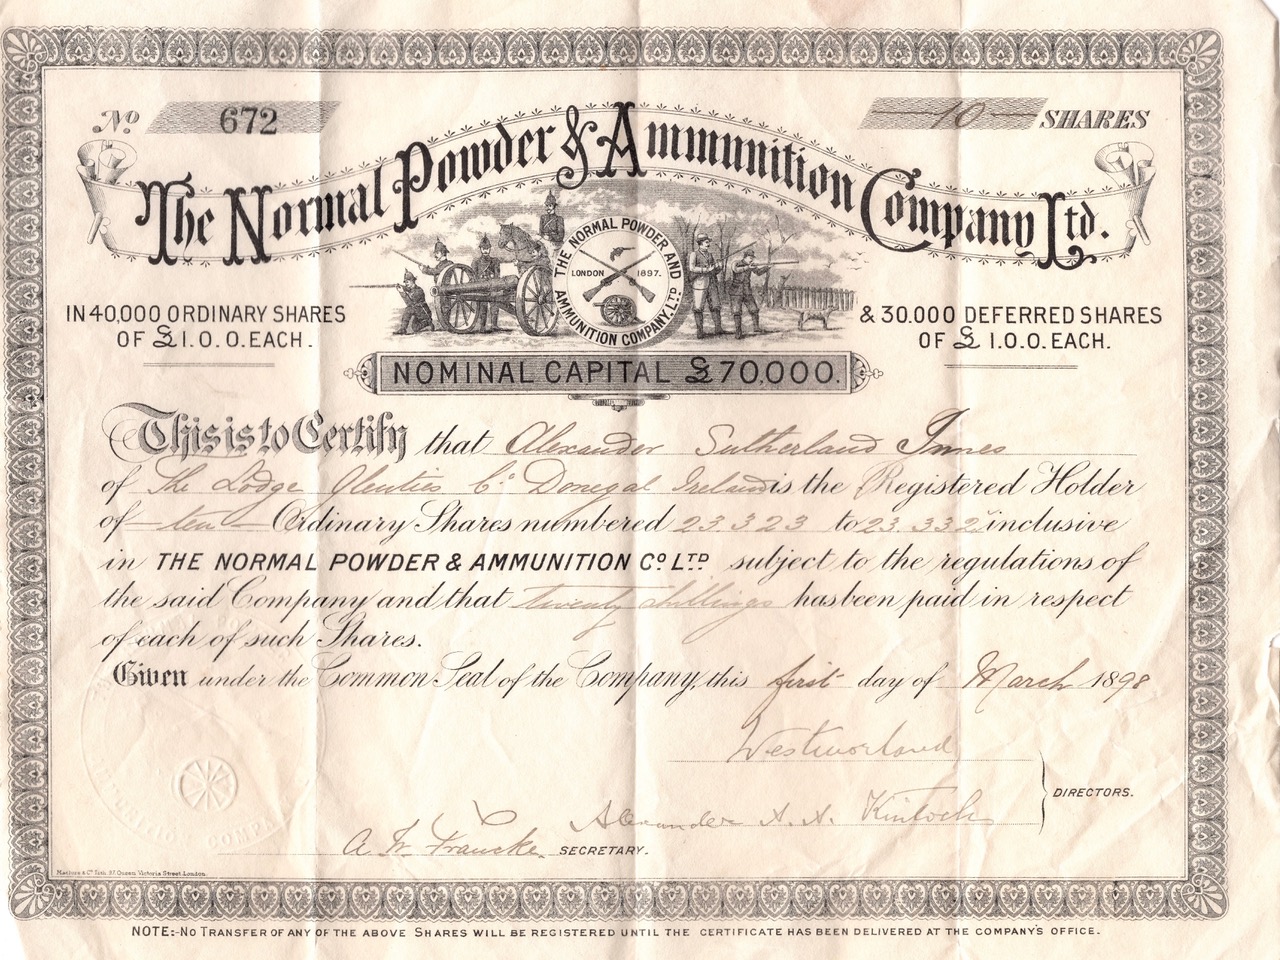 No. 672
10 SHARES
The Normal Powder & Ammunition Company Ltd.
THE NORMAL POWDER AND AMMUNITION COMPANY, LTD
LONDON 1897.
IN 40,000 ORDINARY SHARES
OF £1.0.0. EACH.
& 30.000 DEFERRED SHARES
OF £ 1.0.0. EACH.
NOMINAL CAPITAL £70,000.
This is to Certify that Alexander Sutherland Innes
of The Lodge Glenties Co. Donegal Ireland is the Registered Holder
of ten Ordinary Shares numbered 23.323 to 23.332 inclusive
in THE NORMAL POWDER & AMMUNITION CO. LTD. subject to the regulations of
the said Company and that twenty shillings has been paid in respect
of each of such Shares.
Given under the Common Seal of the Company, this first day of March 1898
Westmorland
DIRECTORS.
Alexander A. A. Kinloch
A. W. Francke SECRETARY.
Maclure & Co. Lith. 97, Queen Victoria Street, London.
NOTE:-NO TRANSFER OF ANY OF THE ABOVE SHARES WILL BE REGISTERED UNTIL THE CERTIFICATE HAS BEEN DELIVERED AT THE COMPANY'S OFFICE.